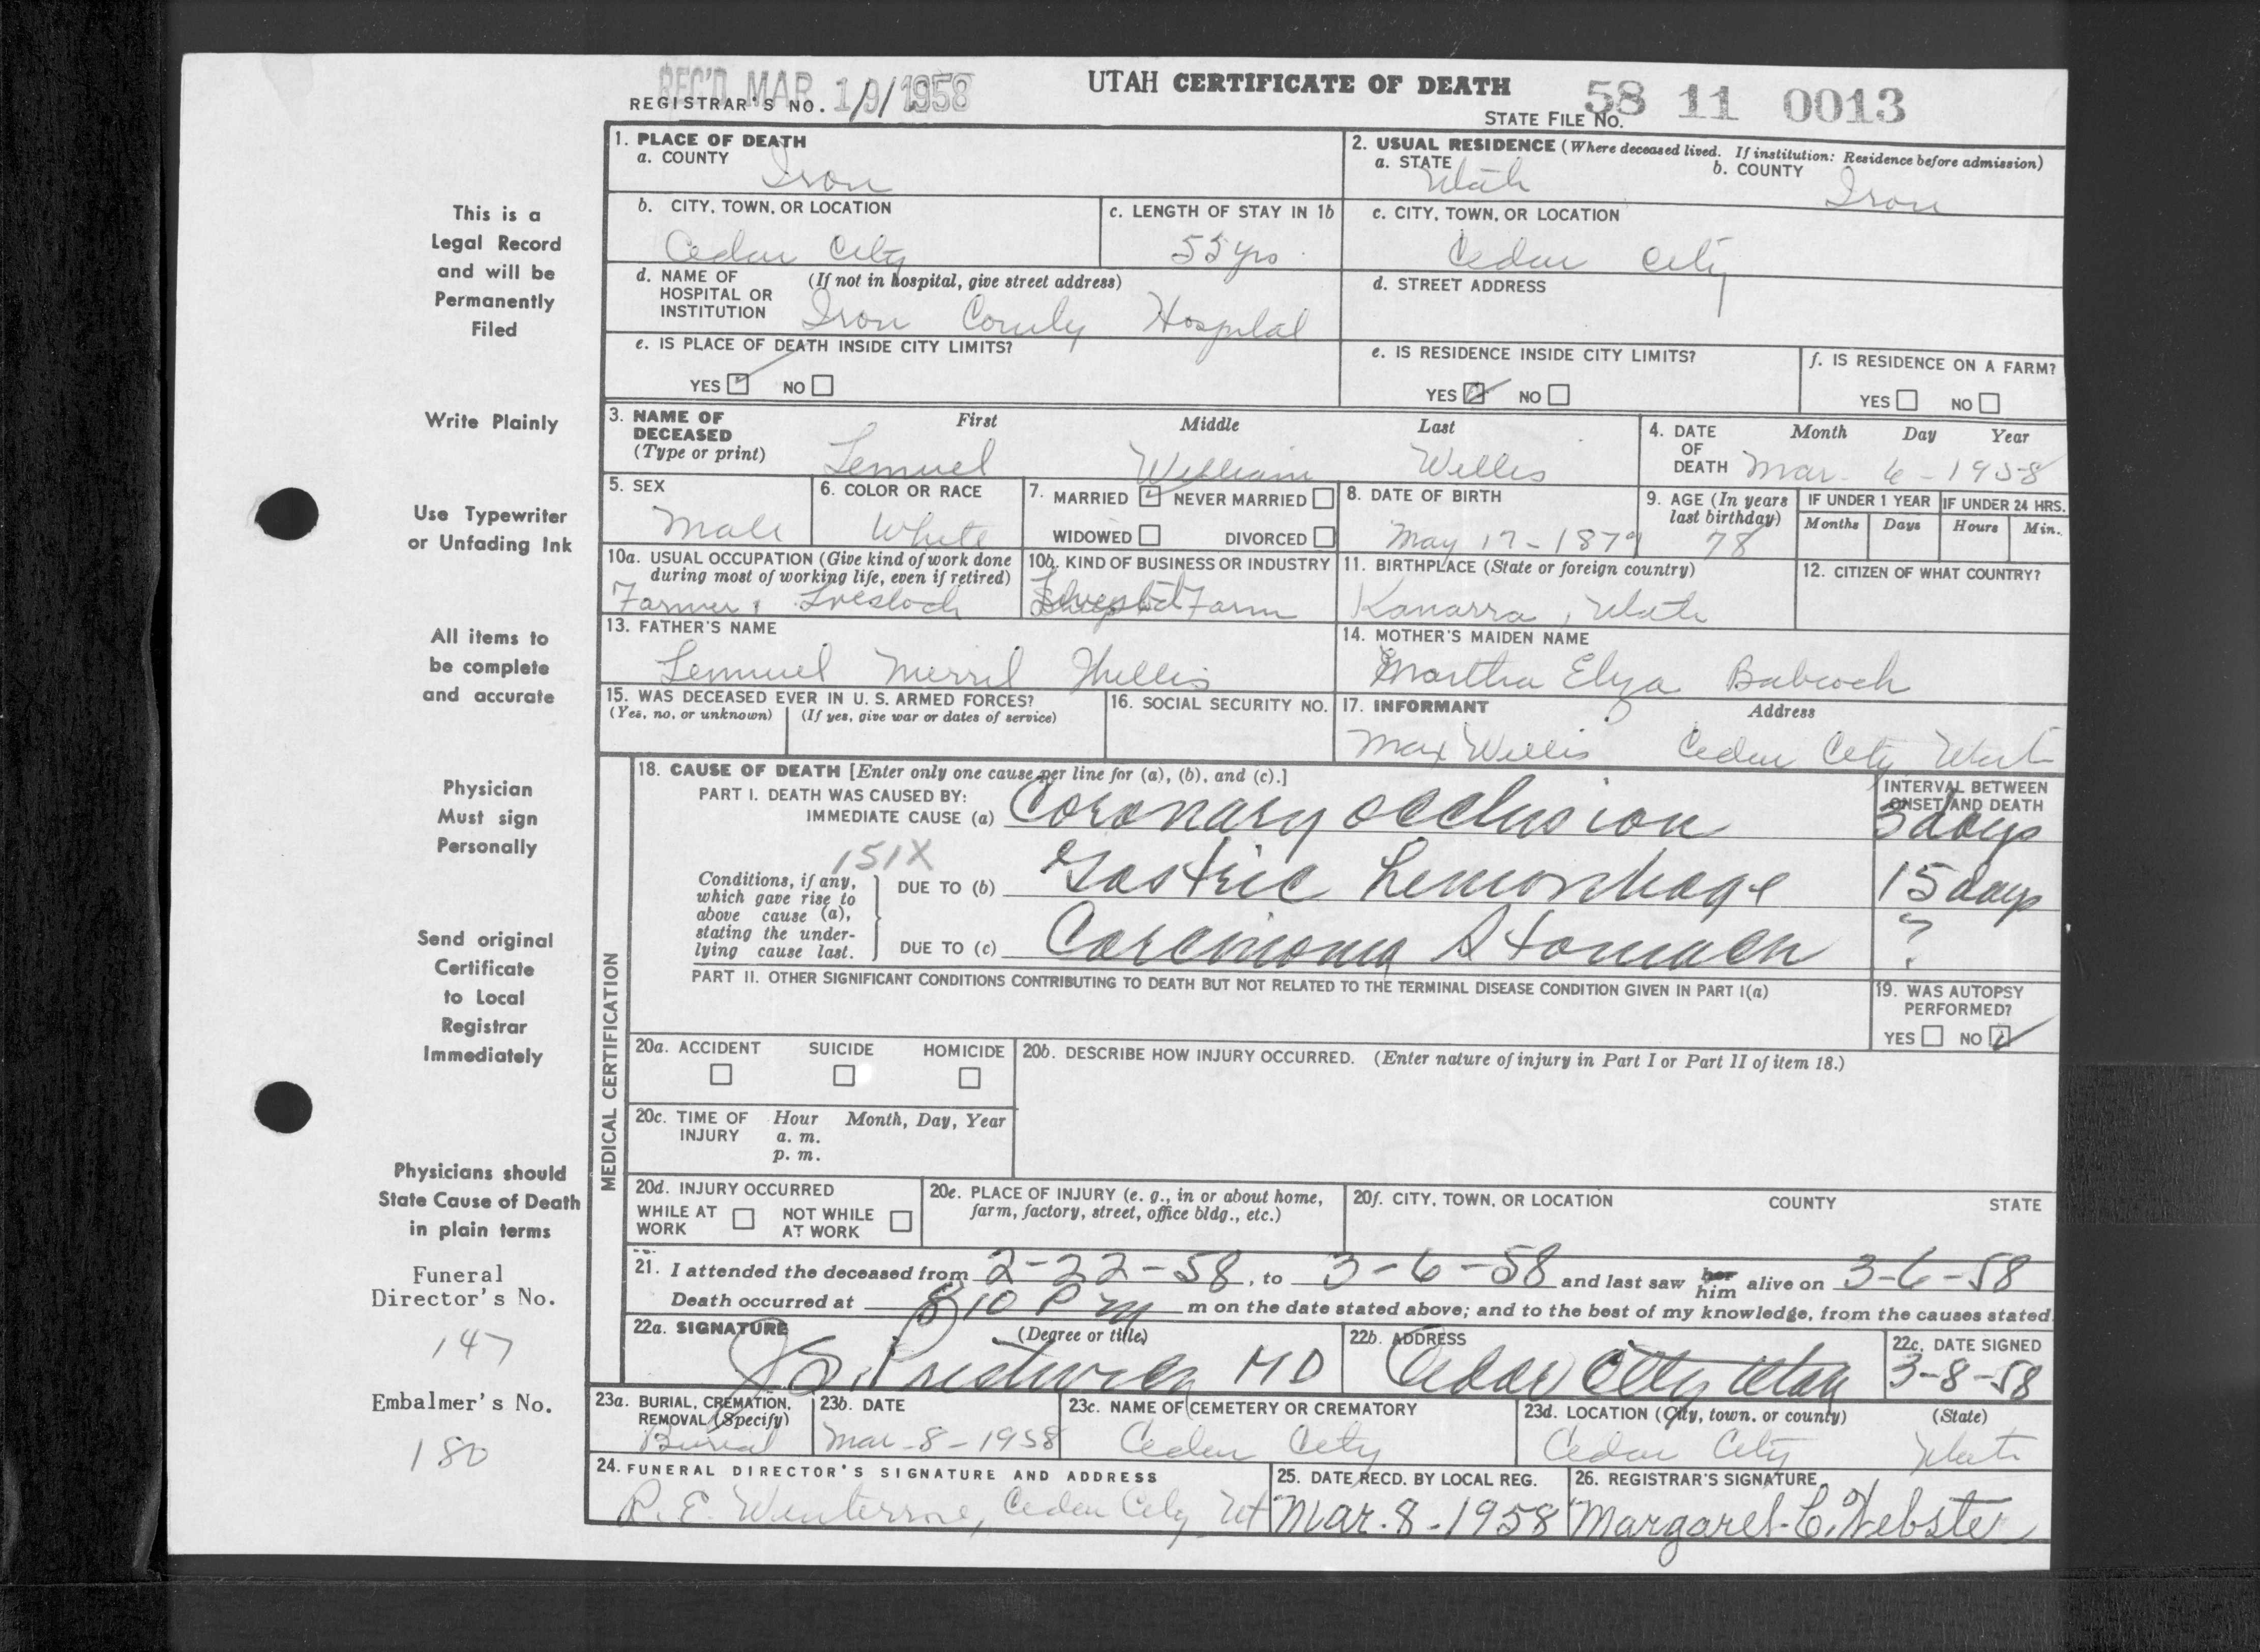 REC'D MAR 19 1958
UTAH CERTIFICATE OF DEATH
REGISTRAR'S NO.
STATE FILE NO. 58 11 0013
This is a
Legal Record
and will be
Permanently
Filed
Write Plainly
Use Typewriter
or Unfading Ink
All items to
be complete
and accurate
Physician
Must sign
Personally
Send original
Certificate
to Local
Registrar
Immediately
Physicians should
State Cause of Death
in plain terms
Funeral
Director's No.
147
Embalmer's No.
180
1. PLACE OF DEATH
a. COUNTY Iron
2. USUAL RESIDENCE (Where deceased lived. If institution: Residence before admission)
a. STATE Utah b. COUNTY Iron
b. CITY, TOWN, OR LOCATION Cedar City
c. LENGTH OF STAY IN 1b 55 yrs.
c. CITY, TOWN, OR LOCATION Cedar City
d. NAME OF (If not in hospital, give street address)
HOSPITAL OR
INSTITUTION Iron County Hospital
d. STREET ADDRESS
e. IS PLACE OF DEATH INSIDE CITY LIMITS?
YES NO
e. IS RESIDENCE INSIDE CITY LIMITS?
YES NO
f. IS RESIDENCE ON A FARM?
YES NO
3. NAME OF First Middle Last
DECEASED
(Type or print) Lemuel William Willis
4. DATE Month Day Year
OF
DEATH Mar. 6-1958
5. SEX Male
6. COLOR OR RACE White
7. MARRIED NEVER MARRIED
WIDOWED DIVORCED
8. DATE OF BIRTH May 17-1879
9. AGE (In years
last birthday) 78
IF UNDER 1 YEAR IF UNDER 24 HRS.
Months Days Hours Min.
10a. USUAL OCCUPATION (Give kind of work done
during most of working life, even if retired)
Farmer, Livestock
10b. KIND OF BUSINESS OR INDUSTRY
Farm
11. BIRTHPLACE (State or foreign country)
Kanarra, Utah
12. CITIZEN OF WHAT COUNTRY?
13. FATHER'S NAME
Lemuel Merril Willis
14. MOTHER'S MAIDEN NAME
Martha Elyza Babcock
15. WAS DECEASED EVER IN U. S. ARMED FORCES?
(Yes, no, or unknown) (If yes, give war or dates of service)
16. SOCIAL SECURITY NO.
17. INFORMANT Address
Max Willis Cedar City Utah
MEDICAL CERTIFICATION
18. CAUSE OF DEATH [Enter only one cause per line for (a), (b), and (c).]
INTERVAL BETWEEN
ONSET AND DEATH
PART I. DEATH WAS CAUSED BY:
IMMEDIATE CAUSE (a) Coronary occlusion 3 days
151X
Conditions, if any,
which gave rise to
above cause (a),
stating the under-
lying cause last.
DUE TO (b) Gastric hemorrhage 15 days
DUE TO (c) Carcinoma Stomach ?
PART II. OTHER SIGNIFICANT CONDITIONS CONTRIBUTING TO DEATH BUT NOT RELATED TO THE TERMINAL DISEASE CONDITION GIVEN IN PART I(a)
19. WAS AUTOPSY
PERFORMED?
YES NO
20a. ACCIDENT SUICIDE HOMICIDE
20b. DESCRIBE HOW INJURY OCCURRED. (Enter nature of injury in Part I or Part II of item 18.)
20c. TIME OF Hour Month, Day, Year
INJURY a. m.
p. m.
20d. INJURY OCCURRED
WHILE AT NOT WHILE
WORK AT WORK
20e. PLACE OF INJURY (e. g., in or about home,
farm, factory, street, office bldg., etc.)
20f. CITY, TOWN, OR LOCATION COUNTY STATE
21. I attended the deceased from 2-22-58, to 3-6-58 and last saw her him alive on 3-6-58
Death occurred at 810 P m m on the date stated above; and to the best of my knowledge, from the causes stated
22a. SIGNATURE (Degree or title)
Prestwich MD
22b. ADDRESS
Cedar City Utah
22c. DATE SIGNED
3-8-58
23a. BURIAL, CREMATION,
REMOVAL (Specify)
Burial
23b. DATE
Mar-8-1958
23c. NAME OF CEMETERY OR CREMATORY
Cedar City
23d. LOCATION (City, town, or county) (State)
Cedar City Utah
24. FUNERAL DIRECTOR'S SIGNATURE AND ADDRESS
R. E. Winterrose, Cedar City Ut
25. DATE RECD. BY LOCAL REG.
Mar. 8-1958
26. REGISTRAR'S SIGNATURE
Margaret C. Webster